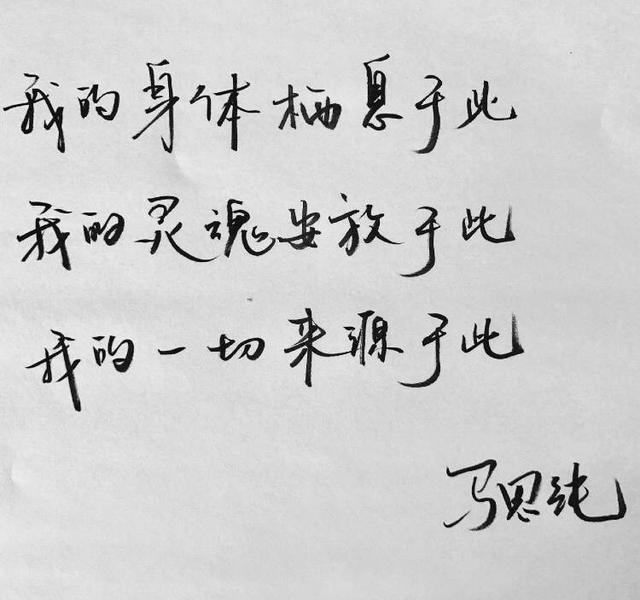 我的身体栖息于此
我的灵魂安放于此
我的一切来源于此
马思纯